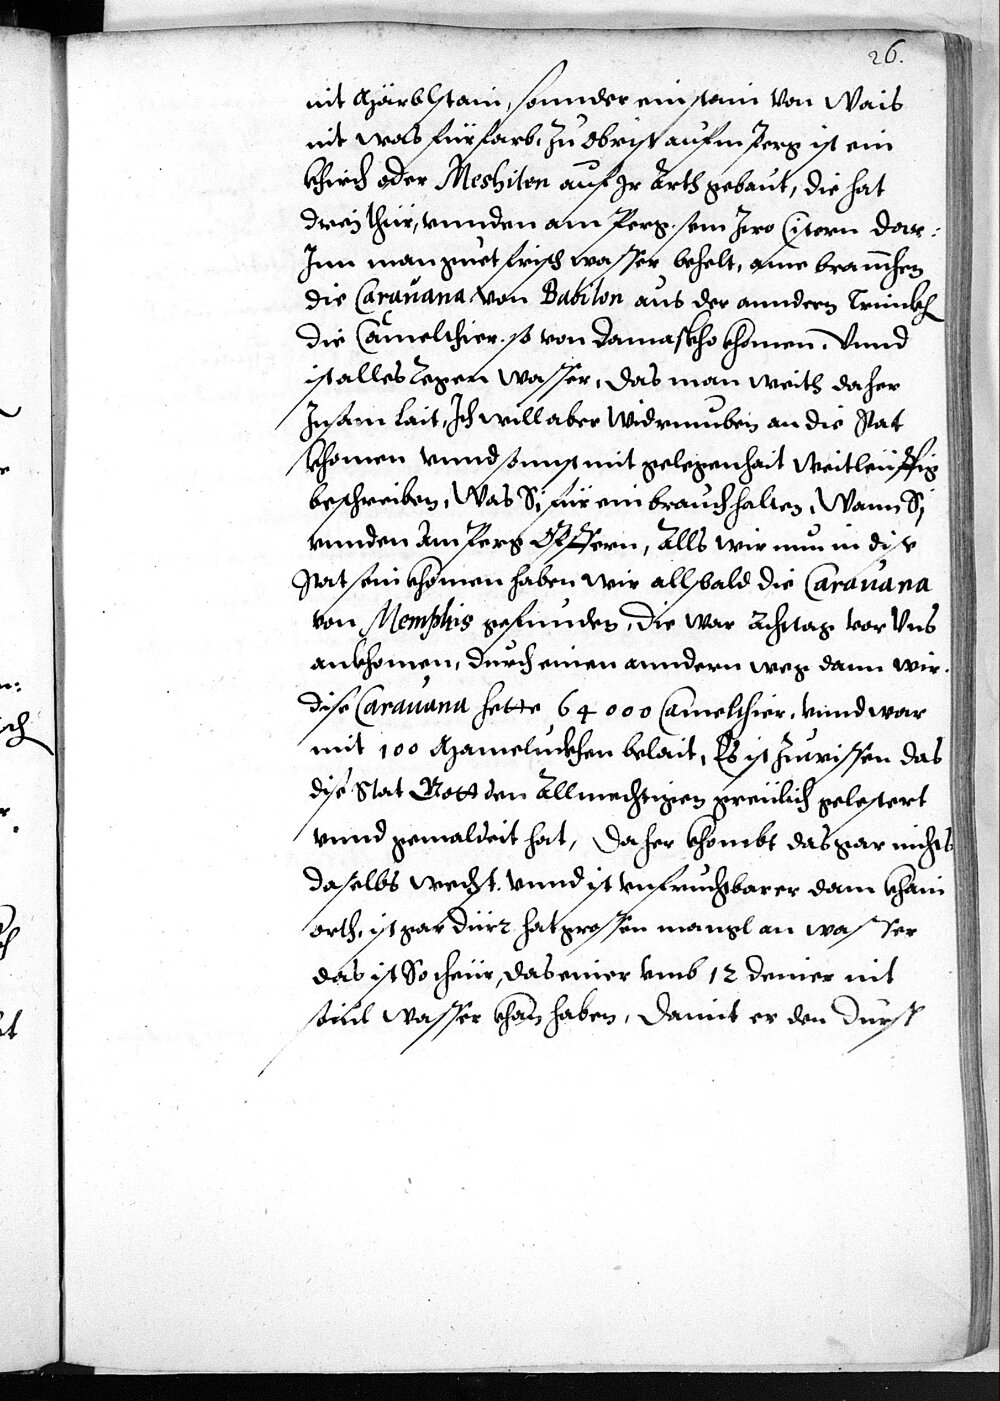 26.
nit Märblstain, sonnder ein stain von Wais
nit was für farb, Zu obrist aufm perg ist ein
khirch oder Meshiten auf Jr Arth gebaut, die hat
drey thür, vnnden am Perg sein Zwo Cistern dar:
Jnn man guet frisch wasser behelt, aine brauchen
die Carauana von Babilon aus der anndern Trinkh
die Cämelthier so von Damaskho khomen. Vnnd
ist alles Regen wasser, das man weith daher
Zusam lait, Jch will aber widrumben an die Stat
khomen vnnd sonnst mit gelegenhait weitleüffig
beschreiben, Was Sy für ein brauch halten, Wann Sy
vnnden Am Perg Opffern, Alls wir nun in dise
Stat sein khomen haben wir allsbald die Carauana
von Memphis gefunden, die war Acht tag vor Vns
ankhomen, durch einen anndern weg dann wir.
dise Carauana hette 64000 Camelthier, vnnd war
mit 100 Mameluckhen belait, Es ist Zuwissen das
dise Stat Gott den Allmechtigen greülich gelestert
vnnd gemaldeit hat, Daher khombt das gar nichts
daselbs wechst, vnnd ist vnfruchtbarer dann khain
orth, ist gar dürr hat grossen mangl an wasser
das ist So theür, das einer vmb 12 denier nit
souil wasser khan haben, Damit er den Durst